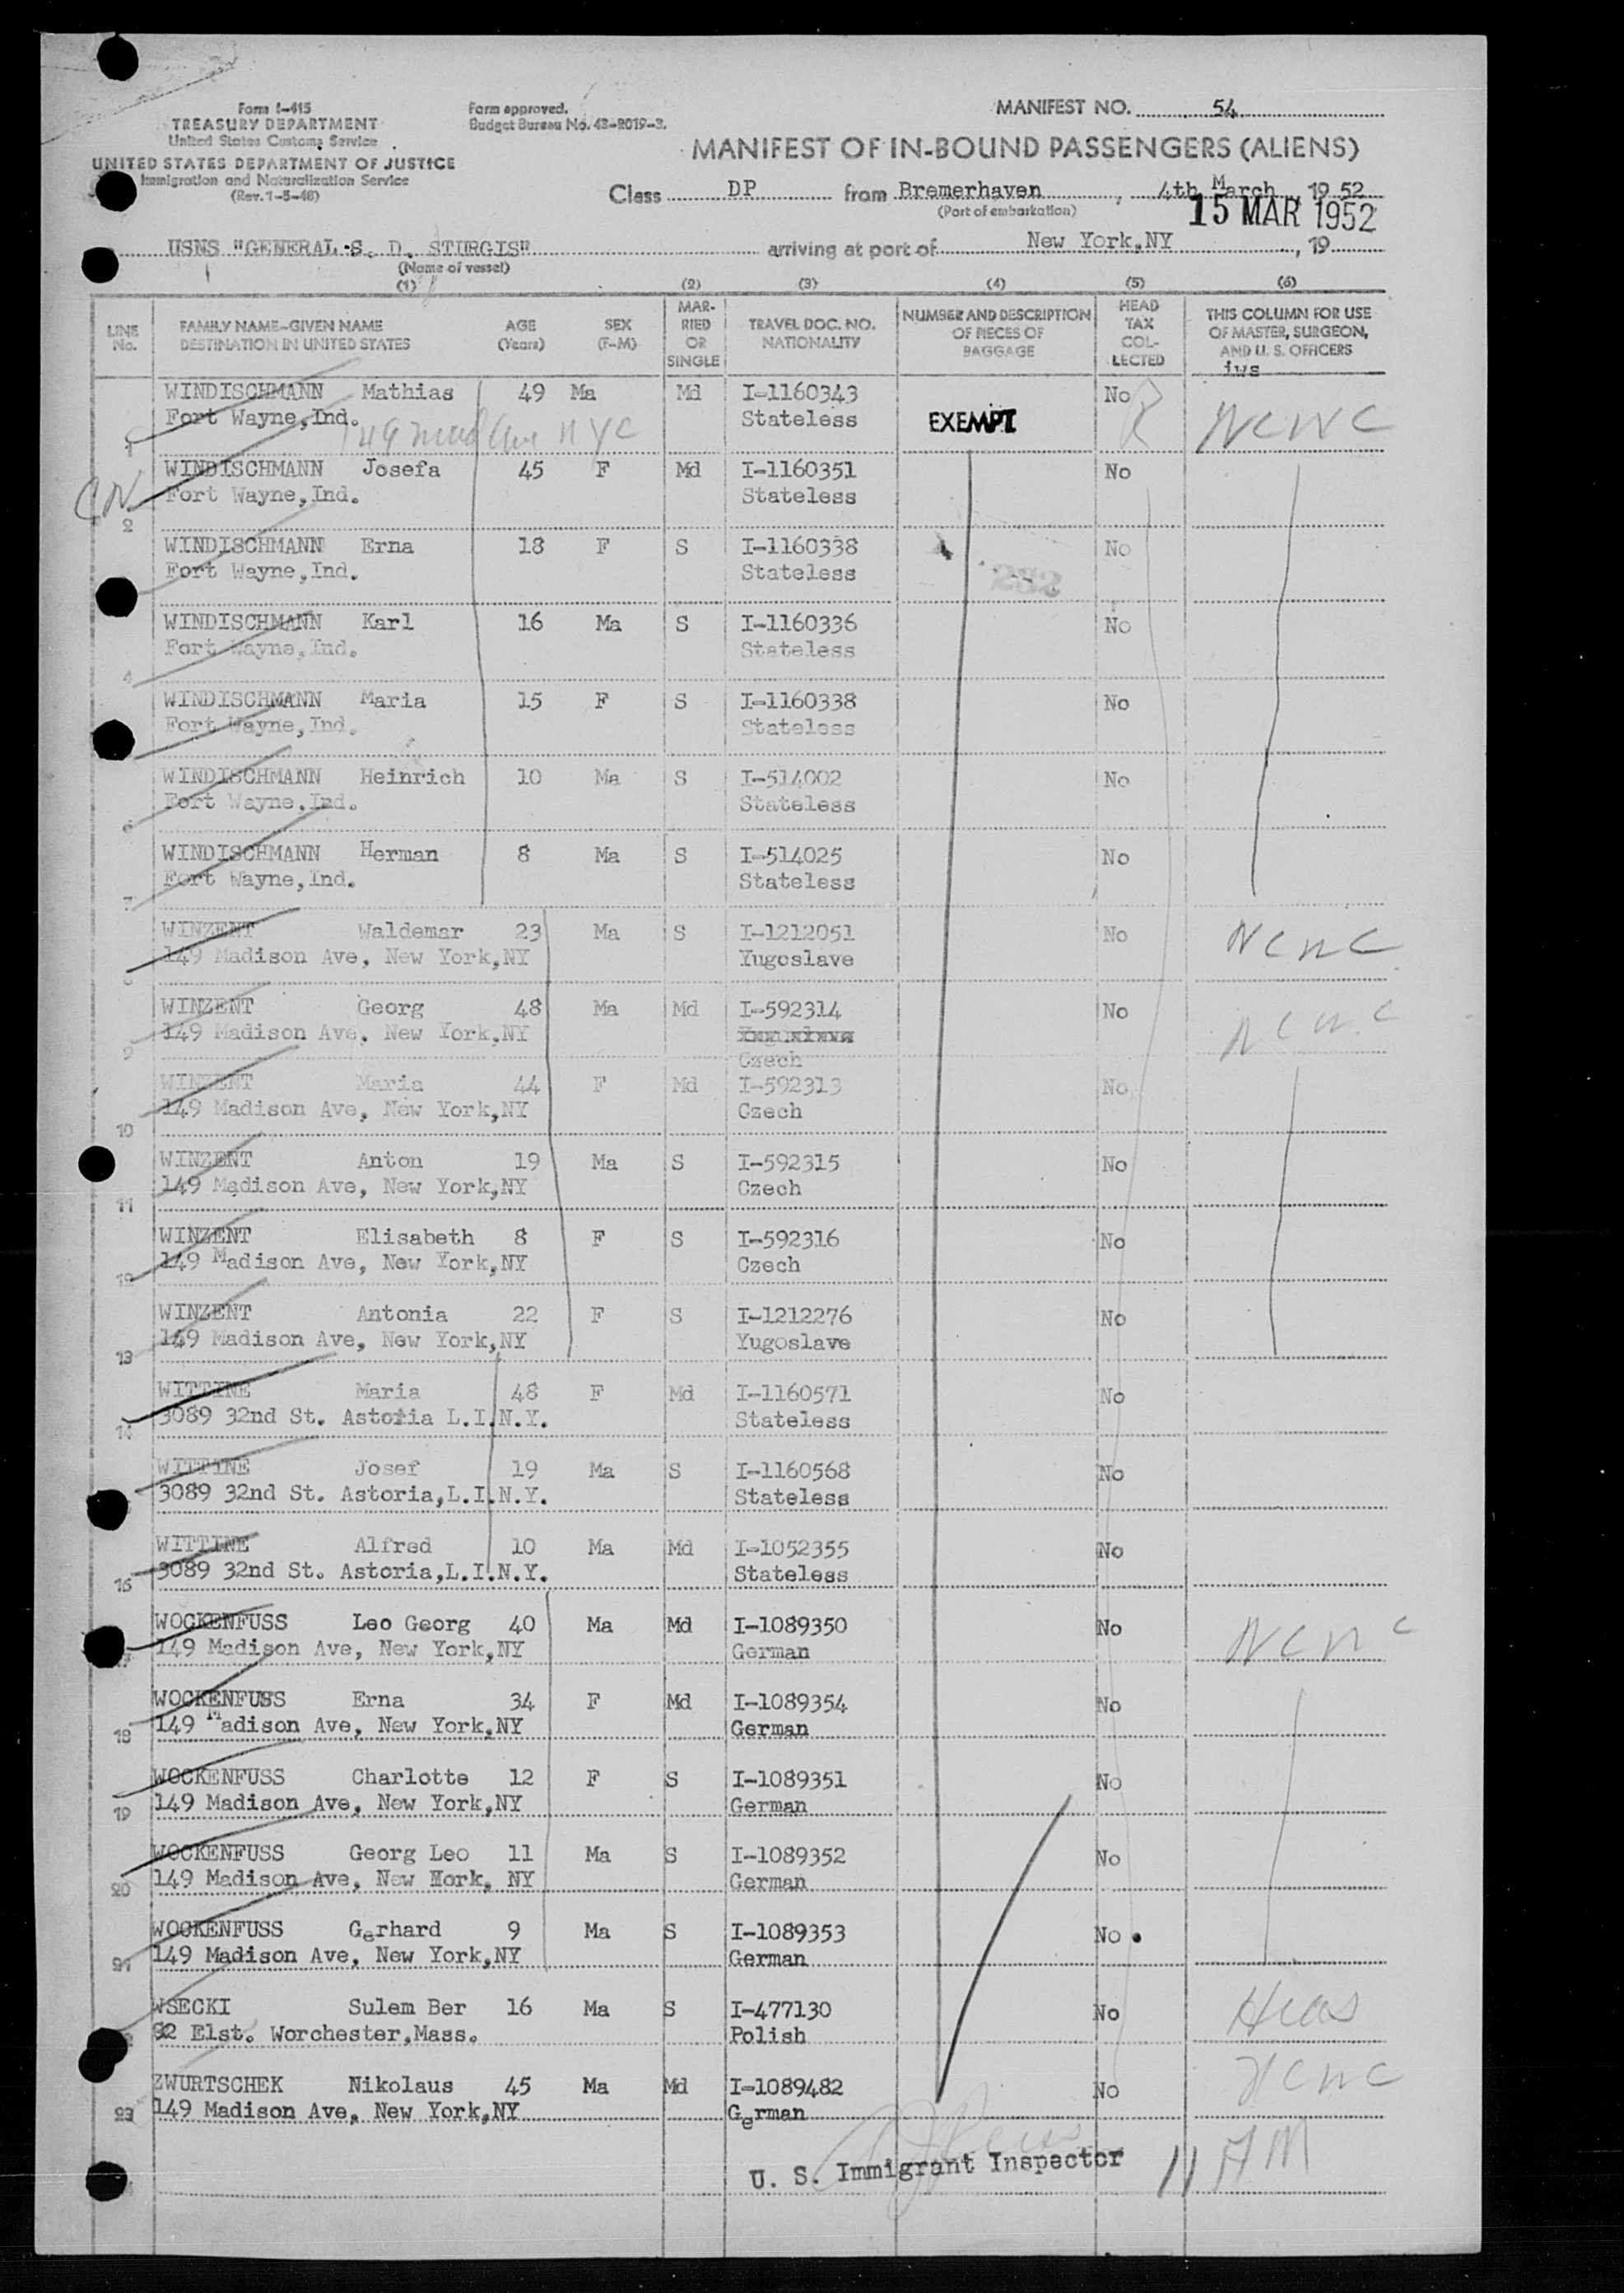 Form I-415
TREASURY DEPARTMENT
United States Customs Service
UNITED STATES DEPARTMENT OF JUSTICE
Immigration and Naturalization Service
(Rev. 1-5-48)
Form approved.
Budget Bureau No. 43-R019-3.
MANIFEST NO. 54
MANIFEST OF IN-BOUND PASSENGERS (ALIENS)
Class DP from Bremerhaven, 4th March, 1952
(Port of embarkation)
15 MAR 1952
USNS "GENERAL S. D. STURGIS" arriving at port of New York,NY, 19
(Name of vessel)
(1) (2) (3) (4) (5) (6)
LINE No.
FAMILY NAME-GIVEN NAME
DESTINATION IN UNITED STATES
AGE (Years)
SEX (F-M)
MARRIED OR SINGLE
TRAVEL DOC. NO.
NATIONALITY
NUMBER AND DESCRIPTION OF PIECES OF BAGGAGE
HEAD TAX COLLECTED
THIS COLUMN FOR USE OF MASTER, SURGEON, AND U. S. OFFICERS
iws
WINDISCHMANN Mathias 49 Ma Md I-1160343 No
Fort Wayne,Ind. 149 Mad Ave NYC Stateless EXEMPT R NCWC
1
WINDISCHMANN Josefa 45 F Md I-1160351 No
Fort Wayne,Ind. Stateless
2
WINDISCHMANN Erna 18 F S I-1160338 No
Fort Wayne,Ind. Stateless
WINDISCHMANN Karl 16 Ma S I-1160336 No
Fort Wayne,Ind. Stateless
4
WINDISCHMANN Maria 15 F S I-1160338 No
Fort Wayne,Ind. Stateless
WINDISCHMANN Heinrich 10 Ma S I-514002 No
Fort Wayne,Ind. Stateless
6
WINDISCHMANN Herman 8 Ma S I-514025 No
Fort Wayne,Ind. Stateless
7
WINZENT Waldemar 23 Ma S I-1212051 No NCWC
149 Madison Ave, New York,NY Yugoslave
8
WINZENT Georg 48 Ma Md I-592314 No NCWC
149 Madison Ave. New York,NY
9 Czech
WINZENT Maria 44 F Md I-592313 No
149 Madison Ave, New York,NY Czech
10
WINZENT Anton 19 Ma S I-592315 No
149 Madison Ave, New York,NY Czech
11
WINZENT Elisabeth 8 F S I-592316 No
149 Madison Ave, New York,NY Czech
12
WINZENT Antonia 22 F S I-1212276 No
149 Madison Ave, New York,NY Yugoslave
13
WITTINE Maria 48 F Md I-1160571 No
3089 32nd St. Astoria L.I.N.Y. Stateless
14
WITTINE Josef 19 Ma S I-1160568 No
3089 32nd St. Astoria,L.I.N.Y. Stateless
WITTINE Alfred 10 Ma Md I-1052355 No
3089 32nd St. Astoria,L.I.N.Y. Stateless
16
WOCKENFUSS Leo Georg 40 Ma Md I-1089350 No NCWC
149 Madison Ave, New York,NY German
WOCKENFUSS Erna 34 F Md I-1089354 No
149 Madison Ave, New York,NY German
18
WOCKENFUSS Charlotte 12 F S I-1089351 No
149 Madison Ave, New York,NY German
19
WOCKENFUSS Georg Leo 11 Ma S I-1089352 No
149 Madison Ave, New Hork, NY German
20
WOCKENFUSS Gerhard 9 Ma S I-1089353 No
149 Madison Ave, New York,NY German
21
WSECKI Sulem Ber 16 Ma S I-477130 No Hias
92 Elst. Worchester,Mass. Polish
ZWURTSCHEK Nikolaus 45 Ma Md I-1089482 No NCWC
23 149 Madison Ave, New York,NY German
U. S. Immigrant Inspector 11 AM